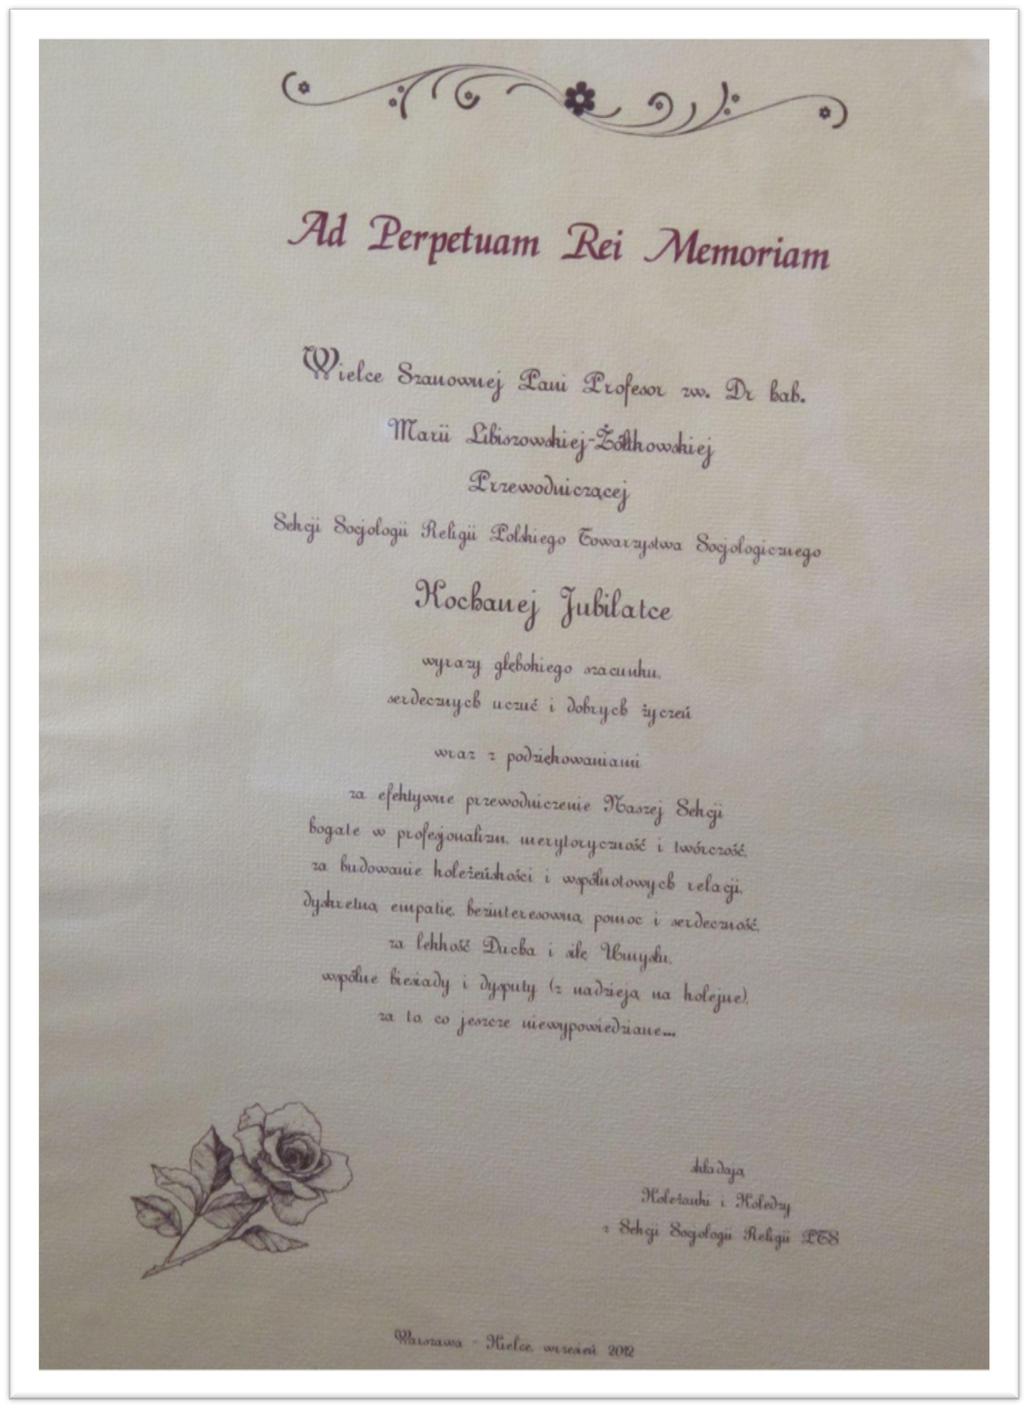 Ad Perpetuam Rei Memoriam
Wielce Szanownej Pani Profesor zw. Dr hab.
Marii Libiszowskiej-Żółtkowskiej
Przewodniczącej
Sekcji Socjologii Religii Polskiego Towarzystwa Socjologicznego
Kochanej Jubilatce
wyrazy głębokiego szacunku,
serdecznych uczuć i dobrych życzeń
wraz z podziękowaniami
za efektywne przewodniczenie Naszej Sekcji
bogate w profesjonalizm, merytoryczność i twórczość,
za budowanie koleżeńskości i wspólnotowych relacji,
dyskretną empatię, bezinteresowną pomoc i serdeczność,
za lekkość Ducha i siłę Umysłu,
wspólne biesiady i dysputy (z nadzieją na kolejne),
za to, co jeszcze niewypowiedziane...
składają
Koleżanki i Koledzy
z Sekcji Socjologii Religii PTS
Warszawa - Kielce, wrzesień 2012